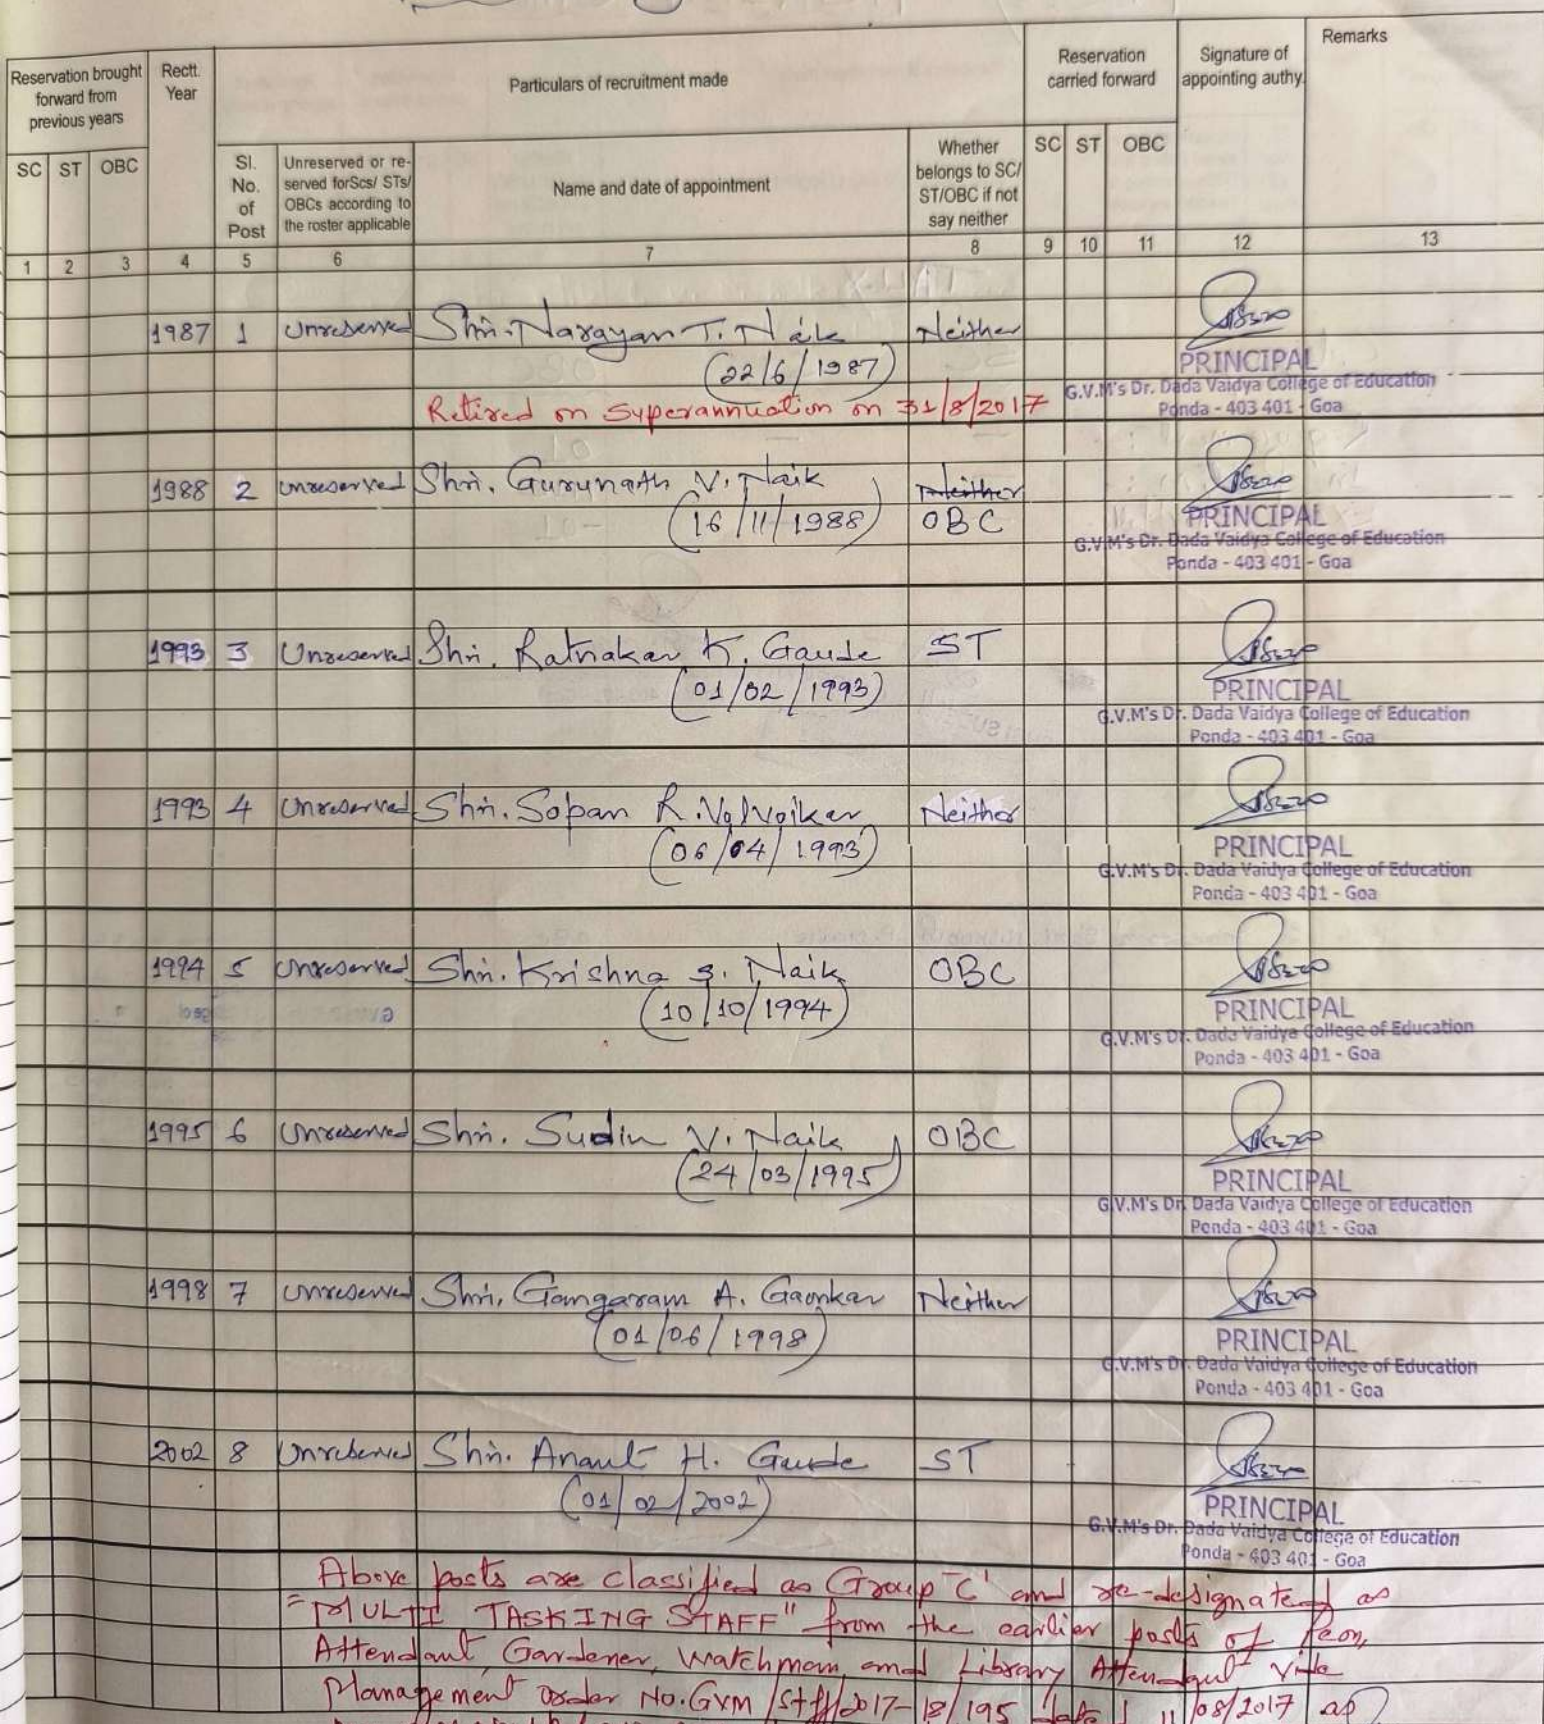 Reservation brought forward from previous years
Rectt. Year
Particulars of recruitment made
Reservation carried forward
Signature of appointing authy.
Remarks
SC ST OBC
Sl. No. of Post
Unreserved or re-served forScs/ STs/ OBCs according to the roster applicable
Name and date of appointment
Whether belongs to SC/ ST/OBC if not say neither
SC ST OBC
1 2 3 4 5 6 7 8 9 10 11 12 13
1987 1 Unreserved Shri. Narayan T. Naik Neither
(22/6/1987)
PRINCIPAL
G.V.M's Dr. Dada Vaidya College of Education
Ponda - 403 401 - Goa
Retired on Superannuation on 31/8/2017
1988 2 Unreserved Shri. Gurunath V. Naik Neither
(16/11/1988) OBC
PRINCIPAL
G.V.M's Dr. Dada Vaidya College of Education
Ponda - 403 401 - Goa
1993 3 Unreserved Shri. Ratnakar K. Gaude ST
(01/02/1993)
PRINCIPAL
G.V.M's Dr. Dada Vaidya College of Education
Ponda - 403 401 - Goa
1993 4 Unreserved Shri. Sopan R. Volvoikar Neither
(06/04/1993)
PRINCIPAL
G.V.M's Dr. Dada Vaidya College of Education
Ponda - 403 401 - Goa
1994 5 Unreserved Shri. Krishna S. Naik OBC
(10/10/1994)
PRINCIPAL
G.V.M's Dr. Dada Vaidya College of Education
Ponda - 403 401 - Goa
1995 6 Unreserved Shri. Sudin V. Naik OBC
(24/03/1995)
PRINCIPAL
G.V.M's Dr. Dada Vaidya College of Education
Ponda - 403 401 - Goa
1998 7 Unreserved Shri. Gangaram A. Gaonkar Neither
(01/06/1998)
PRINCIPAL
G.V.M's Dr. Dada Vaidya College of Education
Ponda - 403 401 - Goa
2002 8 Unreserved Shri. Anant H. Gaude ST
(01/02/2002)
PRINCIPAL
G.V.M's Dr. Dada Vaidya College of Education
Ponda - 403 401 - Goa
Above posts are classified as Group 'C' and re-designated as
"MULTI TASKING STAFF" from the earlier posts of Peon,
Attendant, Gardener, Watchman, and Library Attendant vide
Management order No. GVM/Stff/2017-18/195 dated 11/08/2017 as